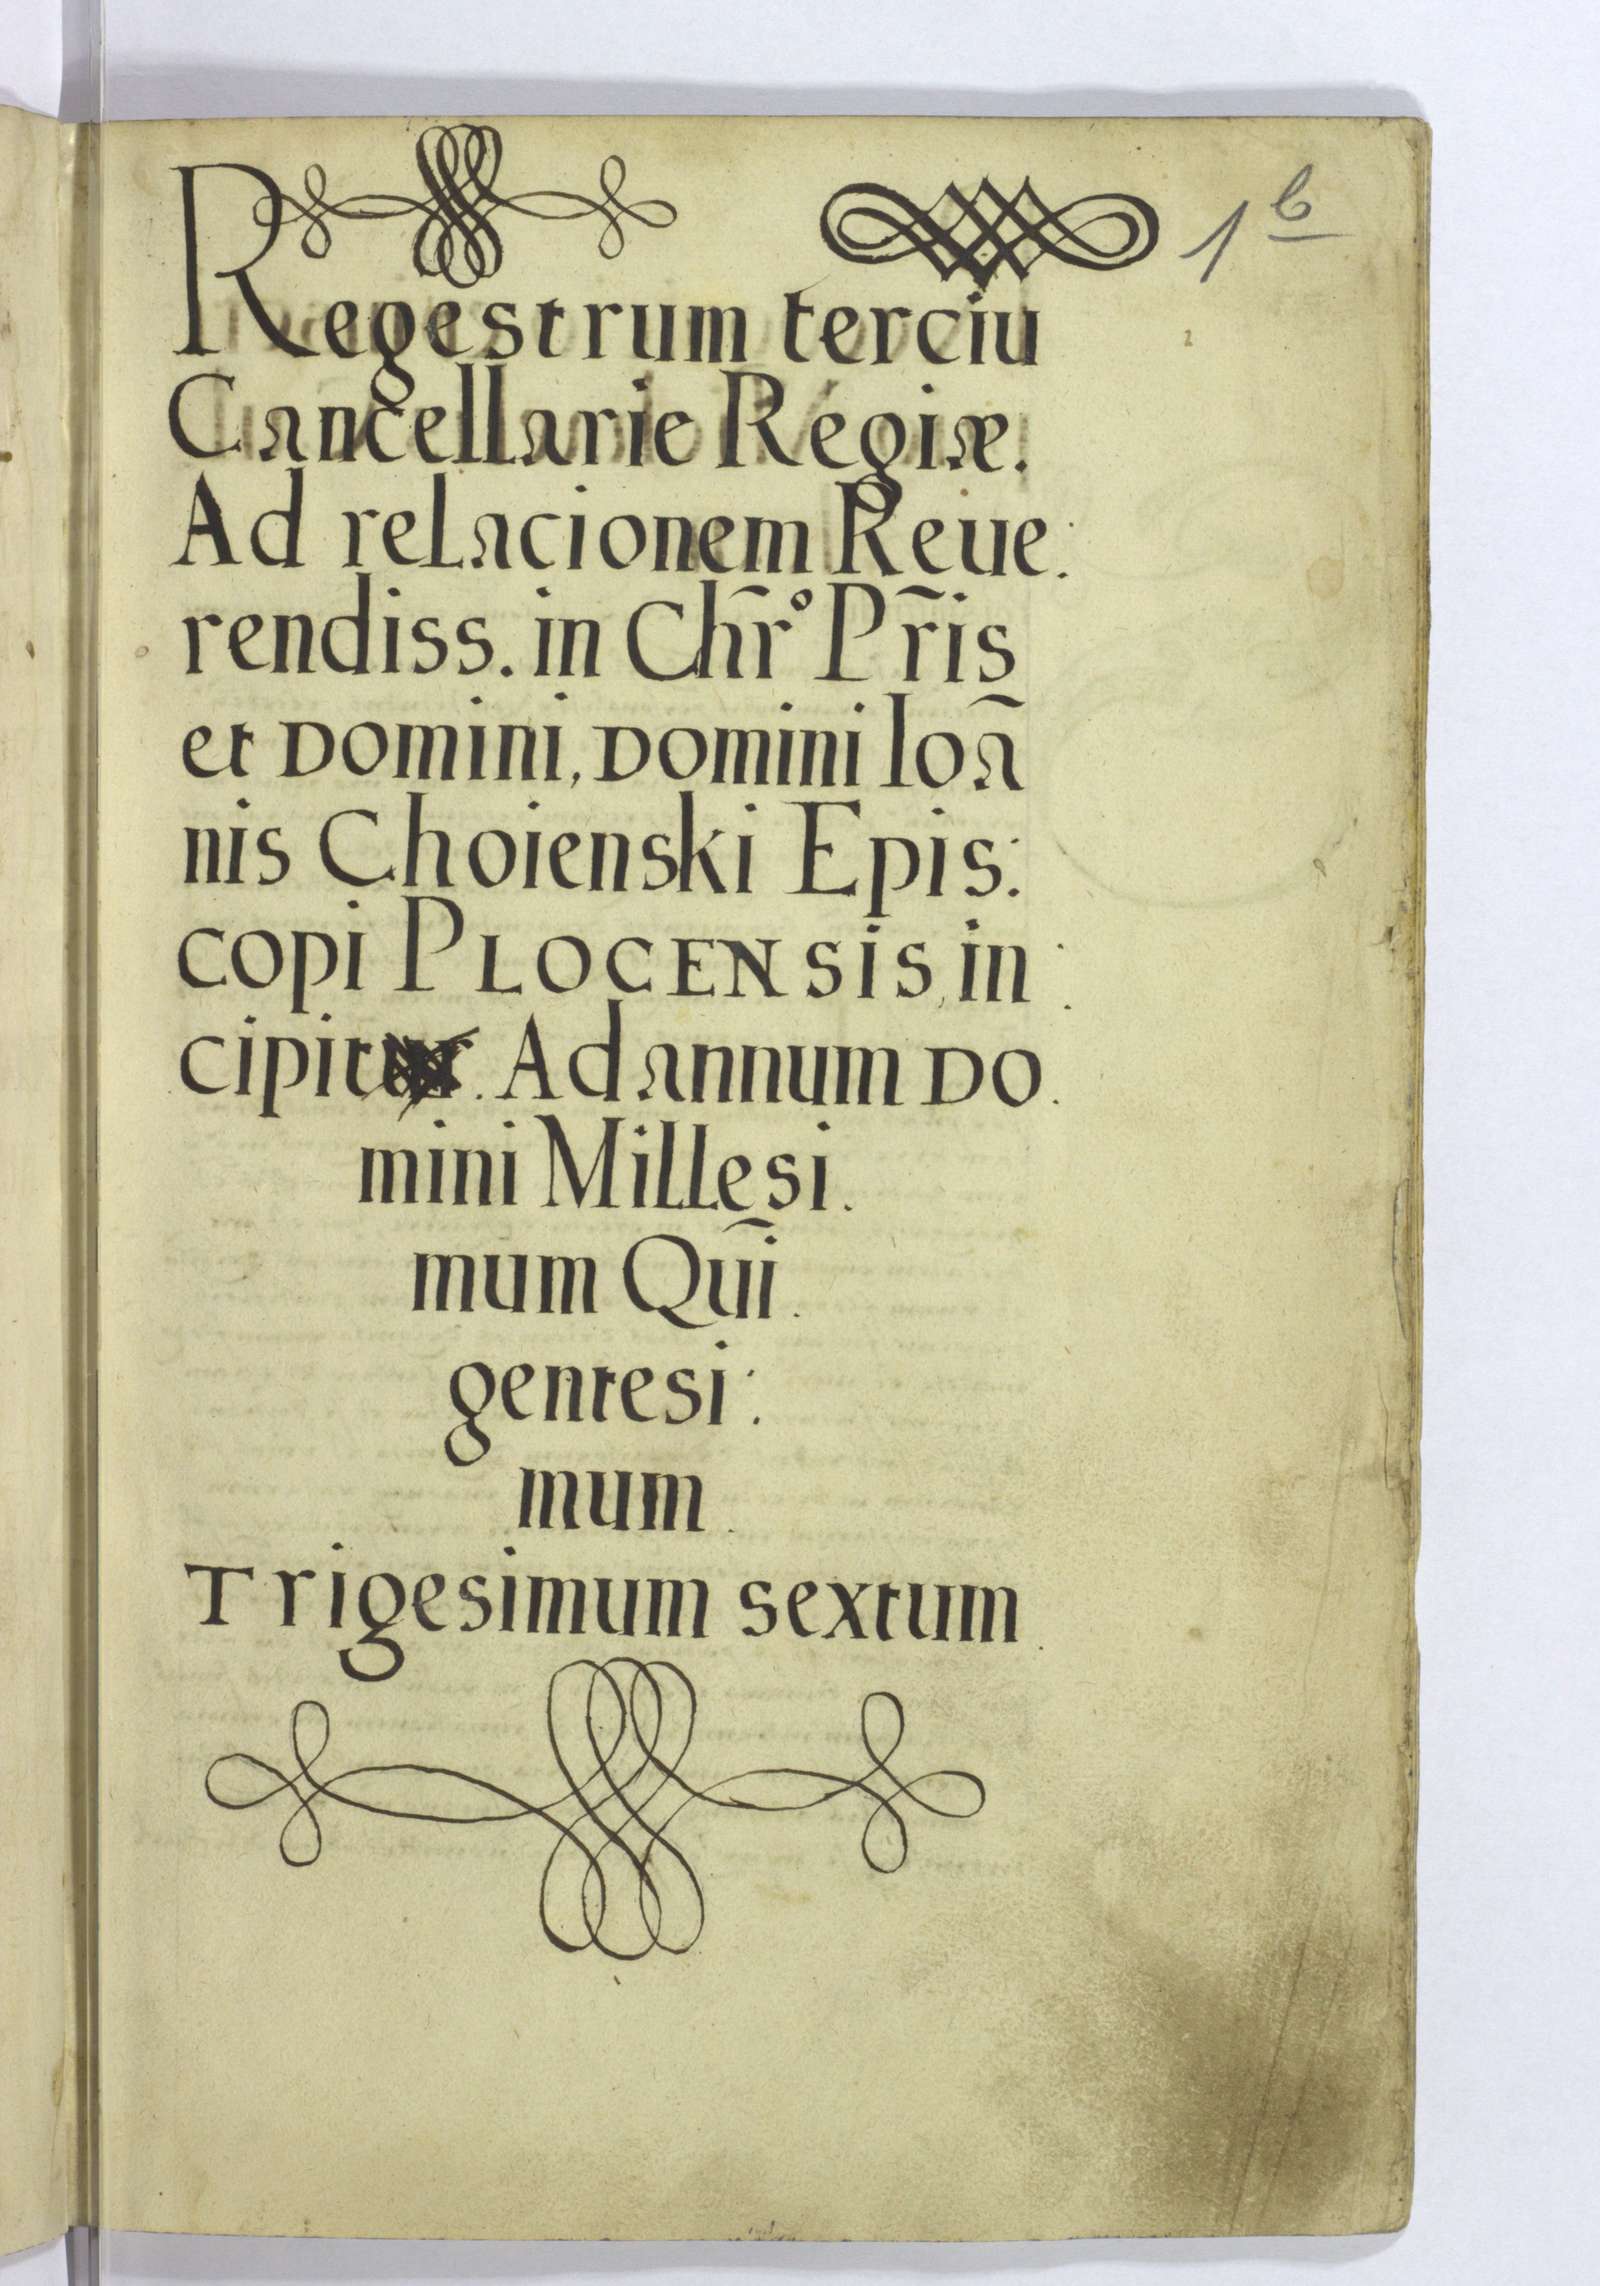 1 b
Regestrum terciu
Cancellarie Regiæ.
Ad relacionem Reue:
rendiss. in Chr̃º Pr̃is
et Domini, Domini Ioã
nis Choienski Epis:
copi PLOCENsis, in:
cipitur. Ad annum DO.
mini Millesi.
mum Quĩ.
gentesi:
mum.
Trigesimum sextum.